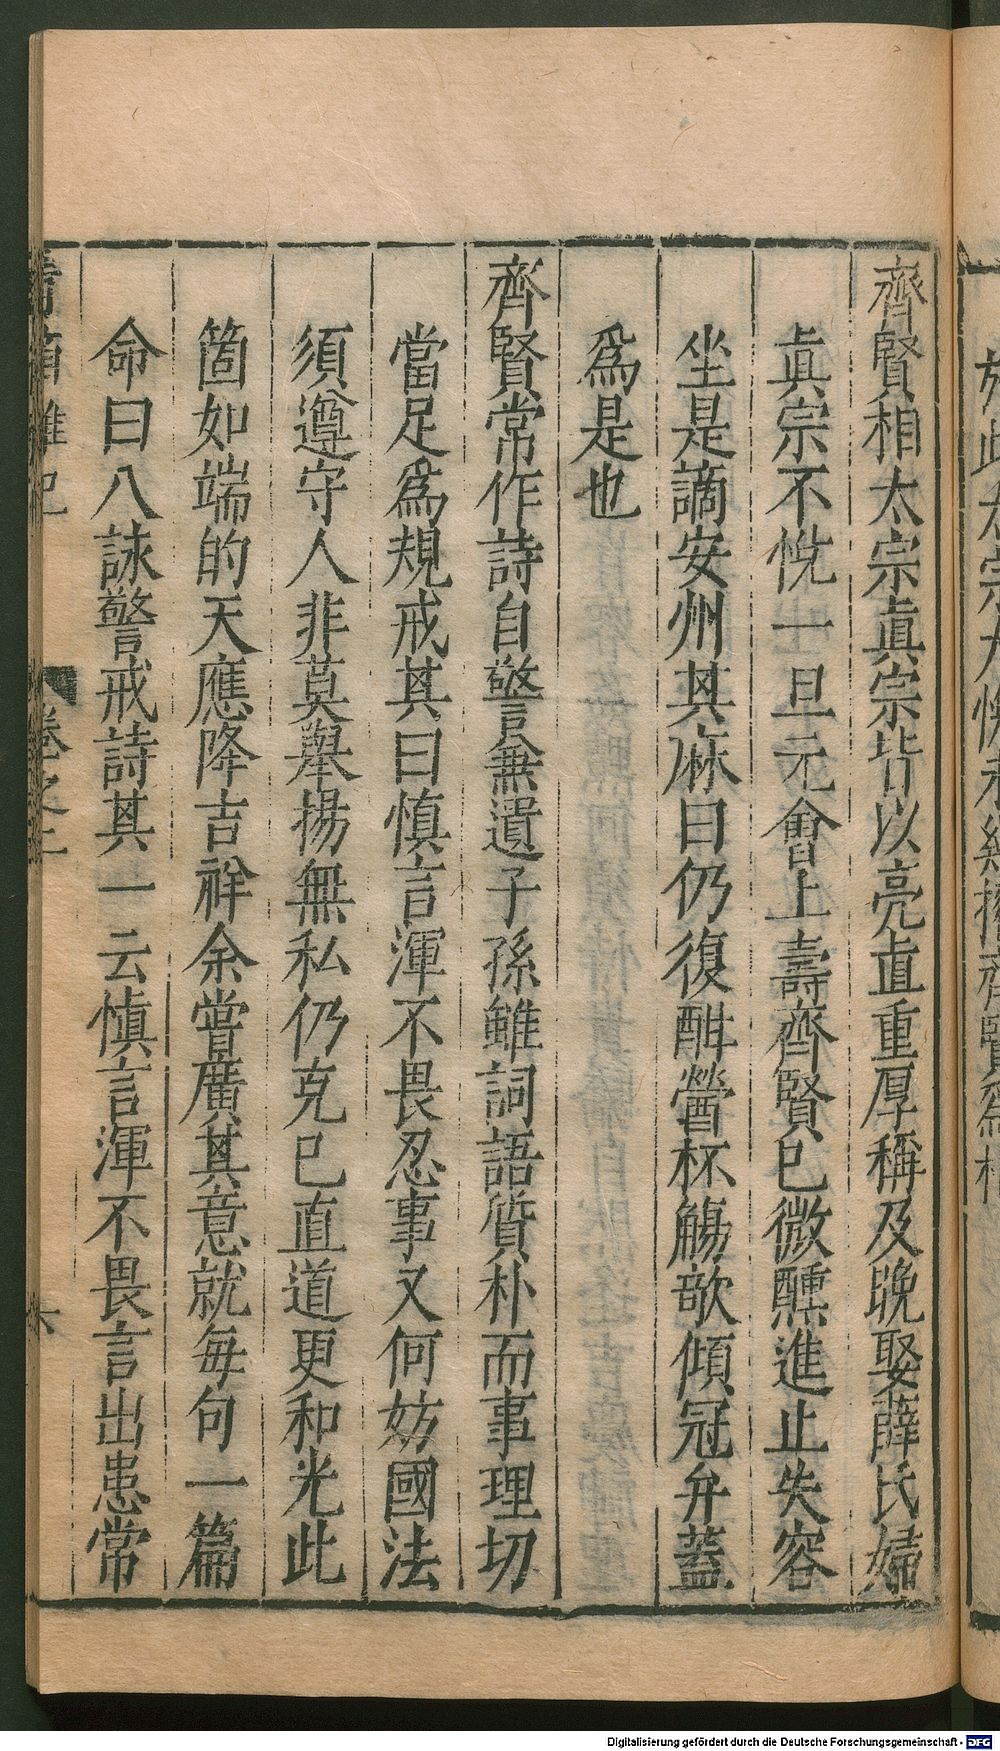 齊賢相太宗眞宗皆以亮直重厚稱及晚娶薛氏婦
眞宗不悅一旦元會上壽齊賢已微醺進止失容
坐是謫安州其麻曰仍復酣醟杯觴欹傾冠弁蓋
爲是也
齊賢常作詩自警兼遺子孫雖詞語質朴而事理切
當足爲規戒其曰慎言渾不畏忍事又何妨國法
須遵守人非莫舉揚無私仍克己直道更和光此
箇如端的天應降吉祥余嘗廣其意就每句一篇
命曰八詠警戒詩其一云慎言渾不畏言出患常
卷之二
六
Digitalisierung gefördert durch die Deutsche Forschungsgemeinschaft - DFG